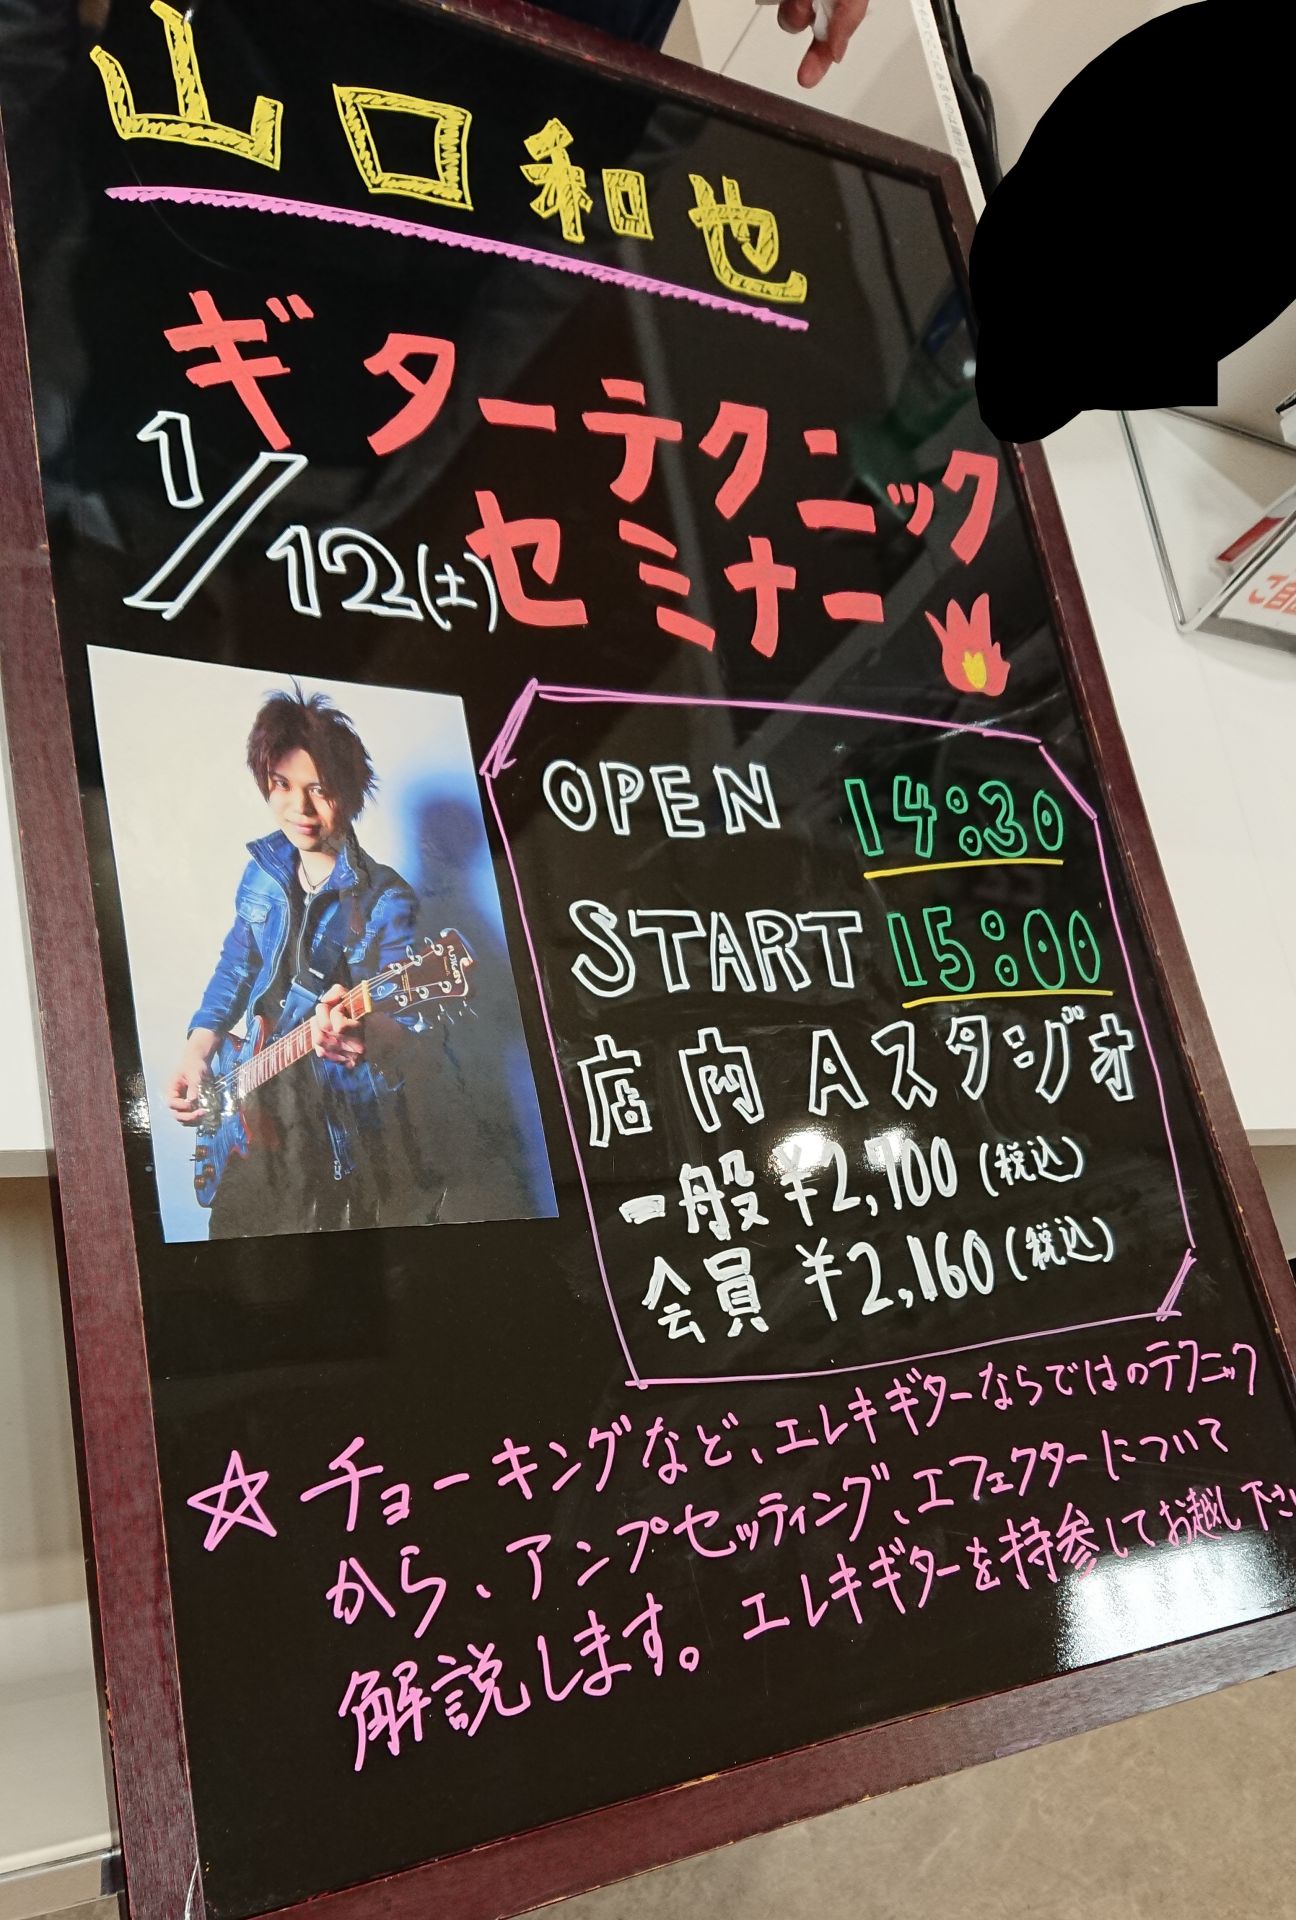 山口和也
ギターテクニック
セミナー
1/12(土)
OPEN 14:30
START 15:00
店内 Aスタジオ
一般 ¥2,700 (税込)
会員 ¥2,160 (税込)
☆ チョーキングなど、エレキギターならではのテクニック
から、アンプセッティング、エフェクターについて
解説します。エレキギターを持参してお越し下さい